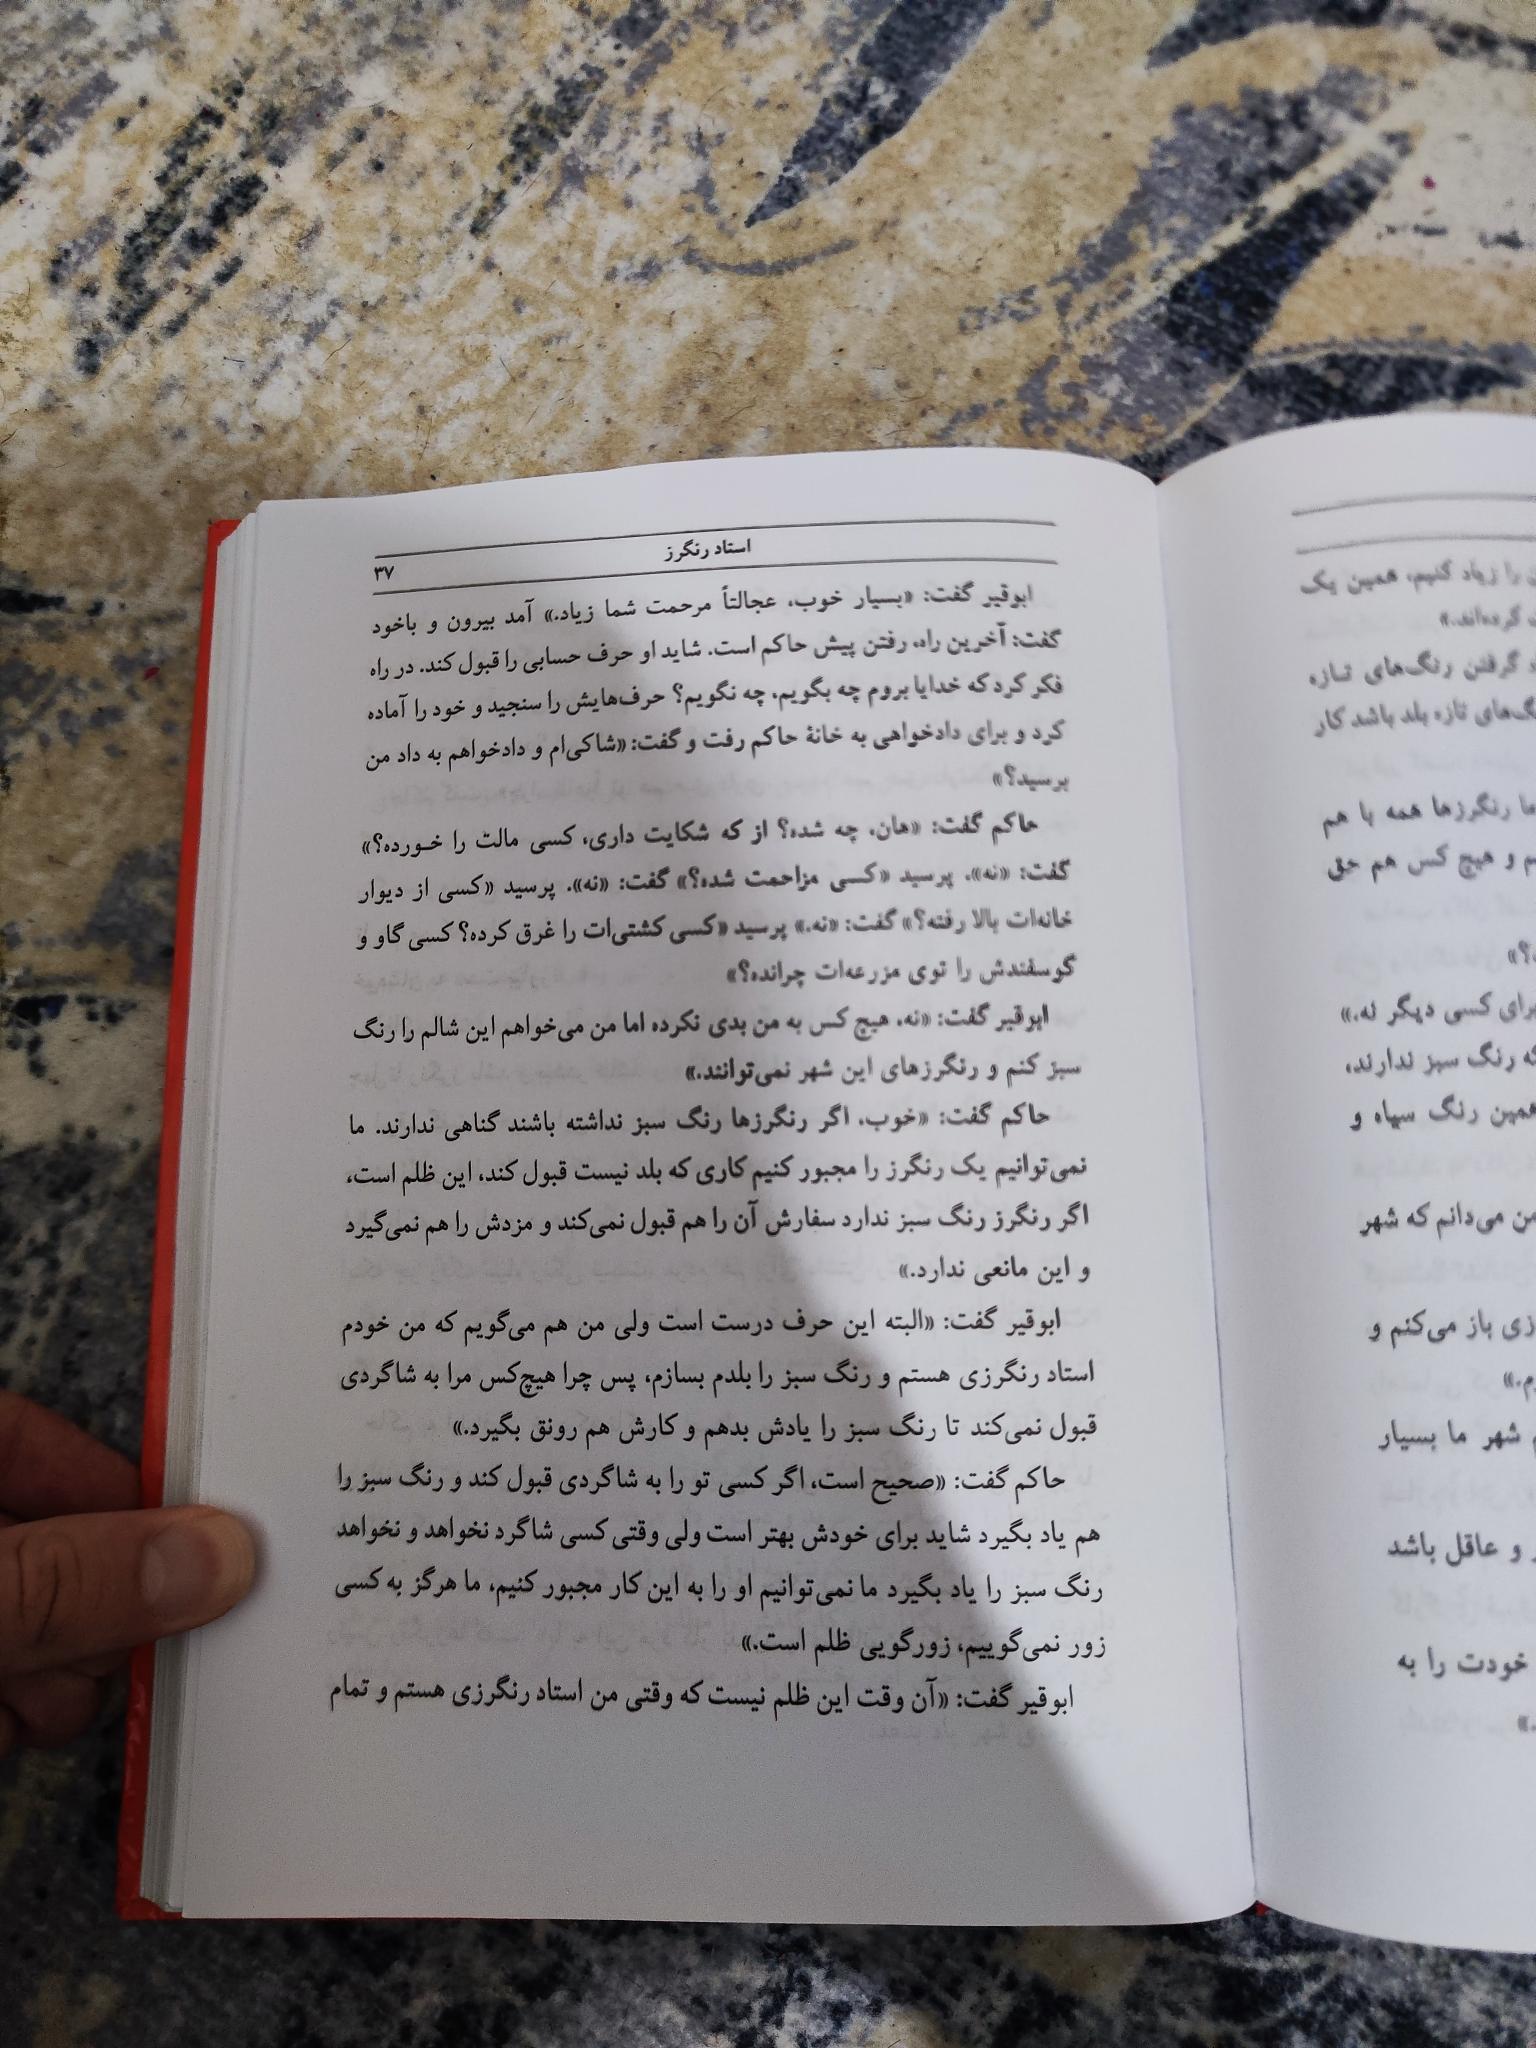 استاد رنگرز
۳۷
ابوقیر گفت: «بسیار خوب، عجالتاً مرحمت شما زیاد.» آمد بیرون و باخود
گفت: آخرین راه، رفتن پیش حاکم است. شاید او حرف حسابی را قبول کند. در راه
فکر کرد که خدایا بروم چه بگویم، چه نگویم؟ حرف‌هایش را سنجید و خود را آماده
کرد و برای دادخواهی به خانهٔ حاکم رفت و گفت: «شاکی‌ام و دادخواهم به داد من
برسید؟»
حاکم گفت: «هان، چه شده؟ از که شکایت داری، کسی مالت را خـورده؟»
گفت: «نه»، پرسید «کسی مزاحمت شده؟» گفت: «نه». پرسید «کسی از دیوار
خانه‌ات بالا رفته؟» گفت: «نه.» پرسید «کسی کشتی‌ات را غرق کرده؟ کسی گاو و
گوسفندش را توی مزرعه‌ات چرانده؟»
ابوقیر گفت: «نه، هیچ کس به من بدی نکرده اما من می‌خواهم این شالم را رنگ
سبز کنم و رنگرزهای این شهر نمی‌توانند.»
حاکم گفت: «خوب، اگر رنگرزها رنگ سبز نداشته باشند گناهی ندارند. ما
نمی‌توانیم یک رنگرز را مجبور کنیم کاری که بلد نیست قبول کند، این ظلم است،
اگر رنگرز رنگ سبز ندارد سفارش آن را هم قبول نمی‌کند و مزدش را هم نمی‌گیرد
و این مانعی ندارد.»
ابوقیر گفت: «البته این حرف درست است ولی من هم می‌گویم که من خودم
استاد رنگرزی هستم و رنگ سبز را بلدم بسازم، پس چرا هیچ‌کس مرا به شاگردی
قبول نمی‌کند تا رنگ سبز را یادش بدهم و کارش هم رونق بگیرد.»
حاکم گفت: «صحیح است، اگر کسی تو را به شاگردی قبول کند و رنگ سبز را
هم یاد بگیرد شاید برای خودش بهتر است ولی وقتی کسی شاگرد نخواهد و نخواهد
رنگ سبز را یاد بگیرد ما نمی‌توانیم او را به این کار مجبور کنیم، ما هرگز به کسی
زور نمی‌گوییم، زورگویی ظلم است.»
ابوقیر گفت: «آن وقت این ظلم نیست که وقتی من استاد رنگرزی هستم و تمام
را زیاد کنیم، همین یک
کرده‌اند.»
گرفتن رنگ‌های تـازه
های تازه بلد باشد کار
رنگرزها همه با هم
و هیچ کس هم حق
برای کسی دیگر نه.»
که رنگ سبز ندارند،
همین رنگ سیاه و
من می‌دانم که شهر
باز می‌کنم و
شهر ما بسیار
و عاقل باشد
خودت را به